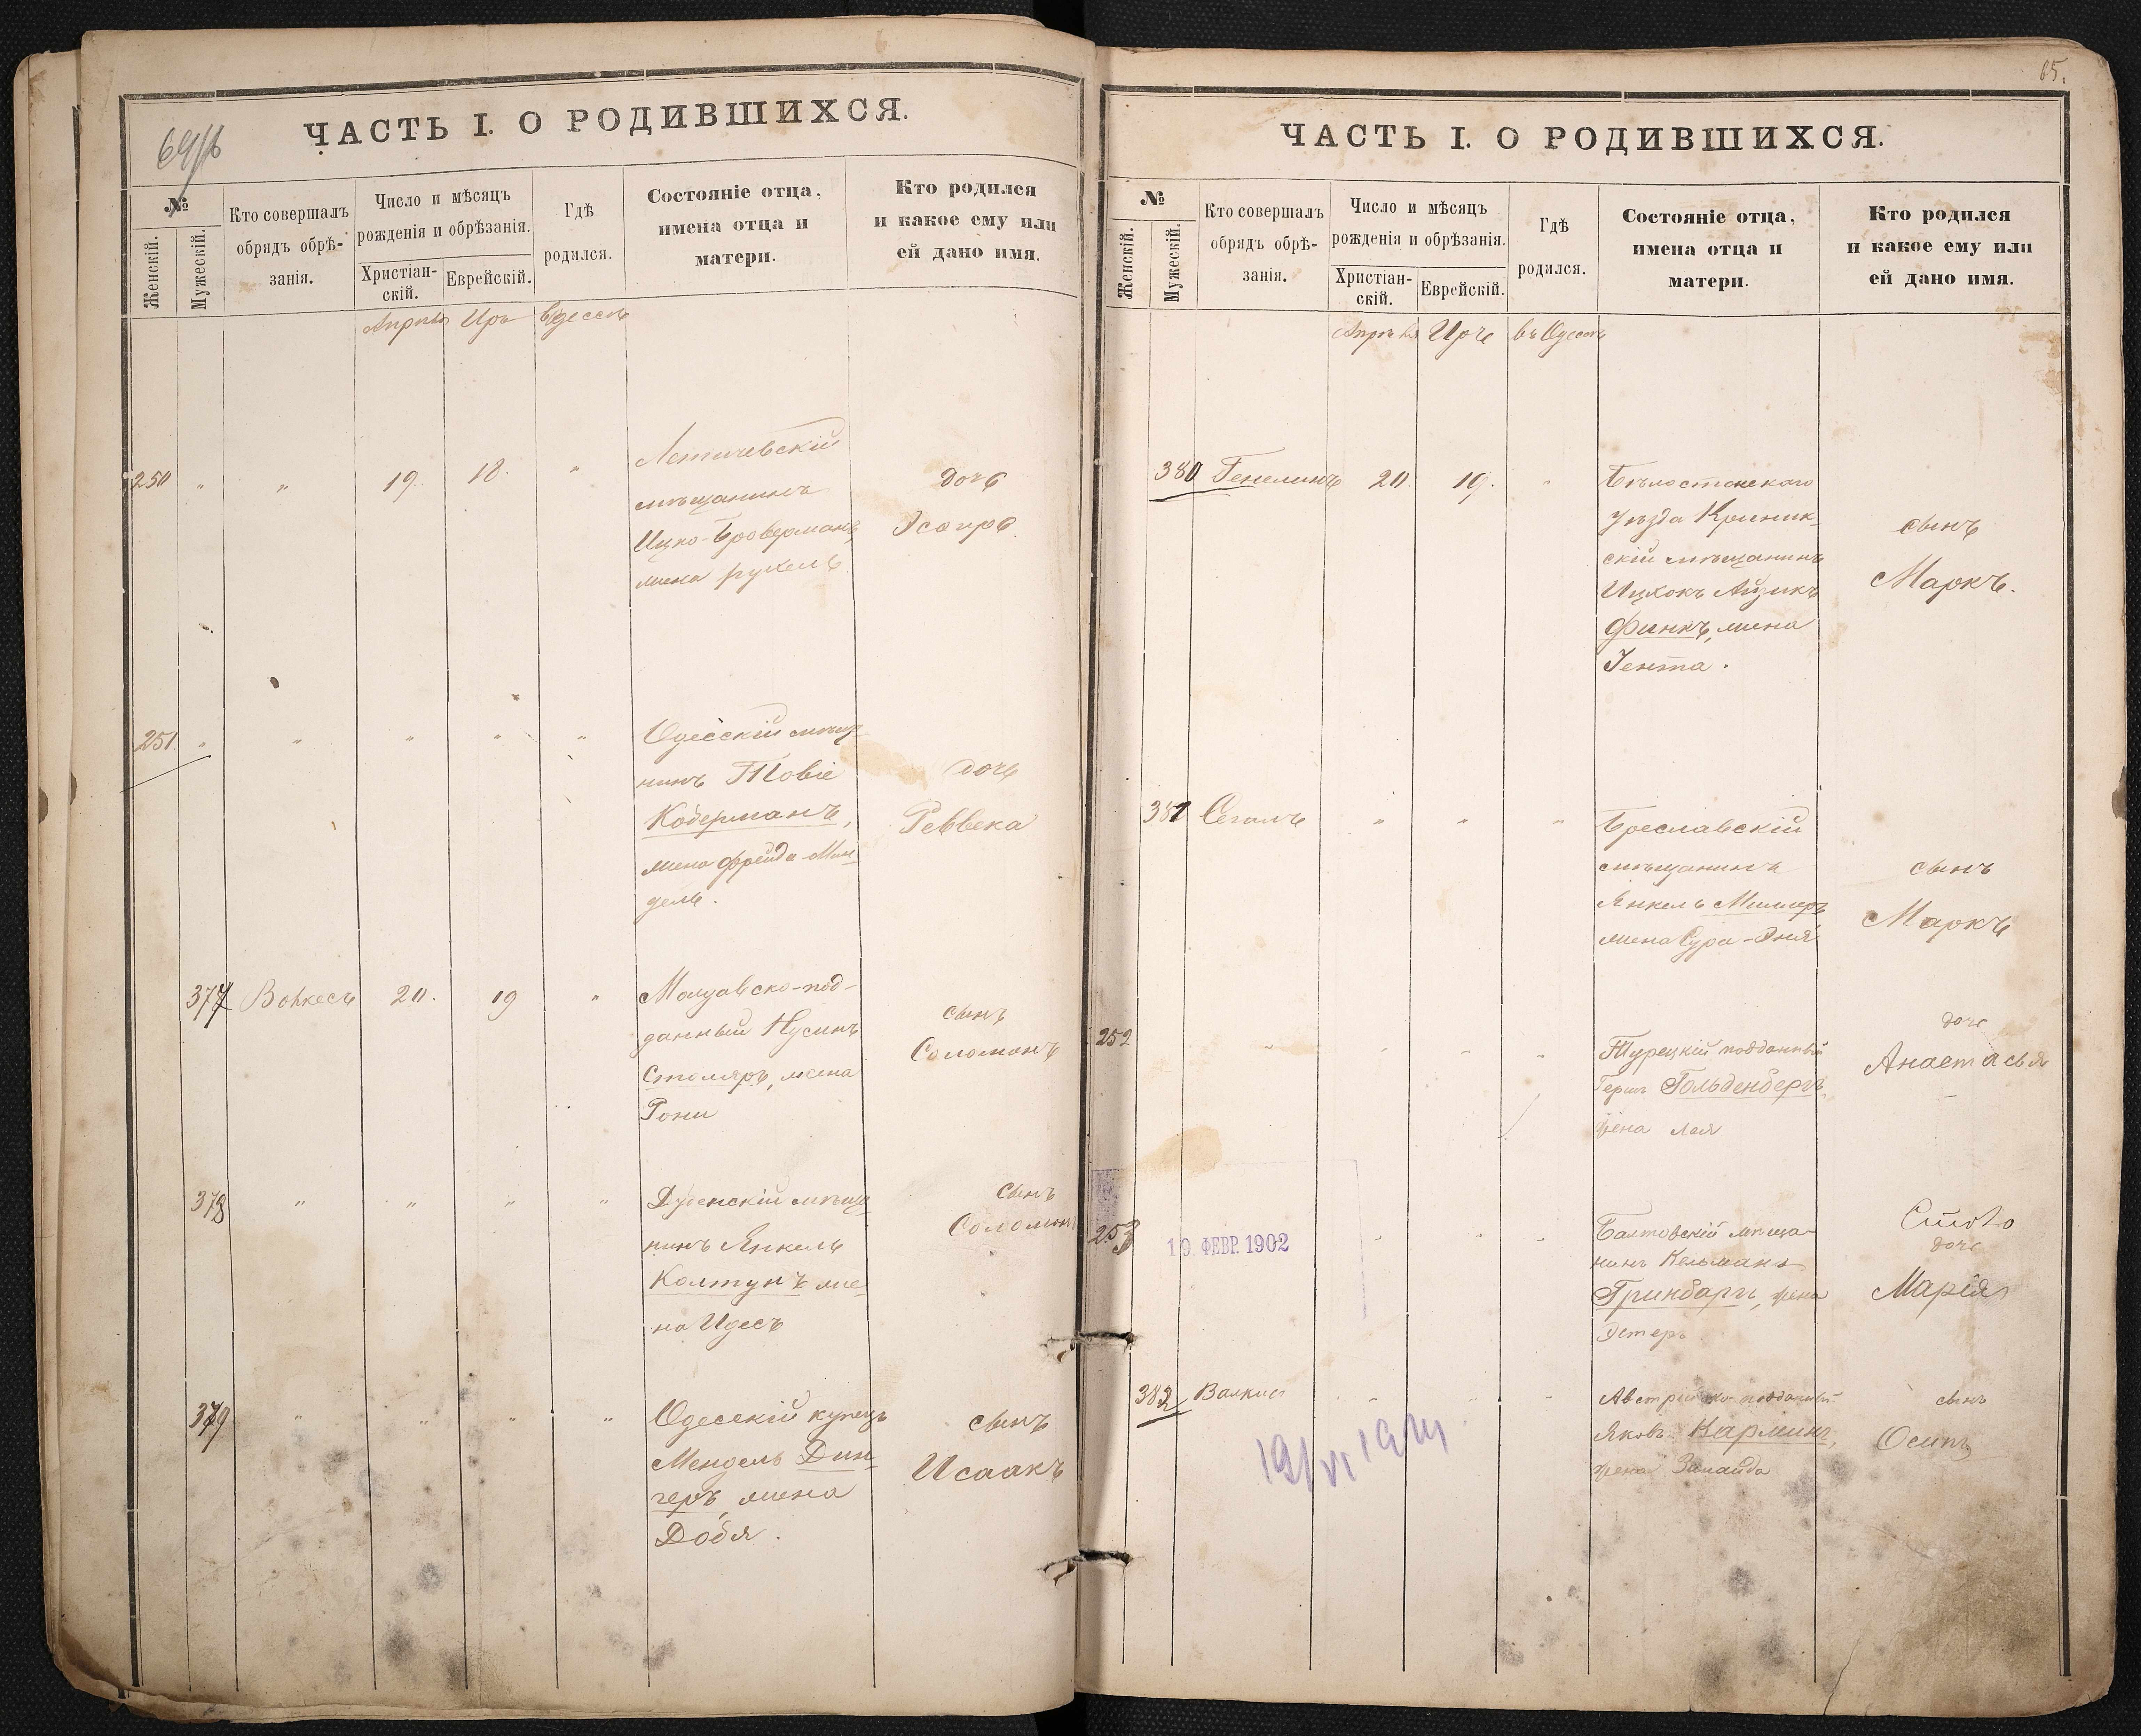 64/б
ЧАСТЬ I. О РОДИВШИХСЯ.
№
Женскій.
Мужескій.
Кто совершалъ
обрядъ обрѣ-
занія.
Число и мѣсяцъ
рожденія и обрѣзанія.
Христіан-
скій.
Еврейскій.
Гдѣ
родился.
Состояніе отца,
имена отца и
матери.
Кто родился
и какое ему или
ей дано имя.
Апрѣля Иръ Одессѣ
250 " " 19. 18. "
Летичевскій
мѣщанинъ
Ицко-Броверманъ,
жена Рухель
дочь
Эсѳирь.
251 " " " " "
Одесскій мѣщ
нинъ Товіе
Коберманъ,
жена Фрейда-Мин
дель.
дочь
Реввека
377 Волкесъ 20. 19 "
Молдавско-под-
данный Нусинъ
Столяръ, жена
Рони
сынъ
Соломонъ
378 " " " "
Дубенскій мѣща
нинъ Янкель
Колтунъ же-
на Идесъ
сынъ
Соломонъ
379 " " " "
Одесскій купецъ
Мендель Дин-
геръ, жена
Добя.
сынъ
Исаакъ
65.
ЧАСТЬ I. О РОДИВШИХСЯ.
№
Женскій.
Мужескій.
Кто совершалъ
обрядъ обрѣ-
занія.
Число и мѣсяцъ
рожденія и обрѣзанія.
Христіан-
скій.
Еврейскій.
Гдѣ
родился.
Состояніе отца,
имена отца и
матери.
Кто родился
и какое ему или
ей дано имя.
Апрѣля Иръ въ Одессѣ
380 20. 19. "
Бѣлостокскаго
уѣзда Криник-
скій мѣщанинъ
Ицхокъ Айзикъ
Финкъ, жена
Іента.
сынъ
Маркъ.
381 Сегалъ " " "
Бреславскій
мѣщанинъ
Янкель Миллеръ
жена Сура-Эня
сынъ
Маркъ
252 " " " "
Турецкій подданный
Гершъ Гольденбергъ,
жена Лея
дочь
Анастасья
253 19. ФЕВР. 1902 " " "
Балтовскій мѣща-
нинъ Кельманъ
Гринбаргъ, жена
Эстеръ
дочь
Марія
382 Валкис " " "
Австрійско-подданный
Яковъ Карминъ,
жена Зинаида
сынъ
Осипъ
19/VI 1914